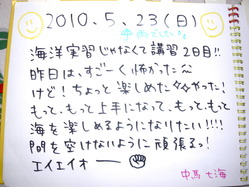 2010.5.23(日)
海洋実習じゃなくて講習2日目!!
昨日は、すごーく怖かった
けど!ちょっと楽しめたかった!
もっと、もっと上手になって、もっと、もっと
海を楽しめるようになりたい!!!!
間を空けないように頑張るっ!
エイエイオー
中馬 七海